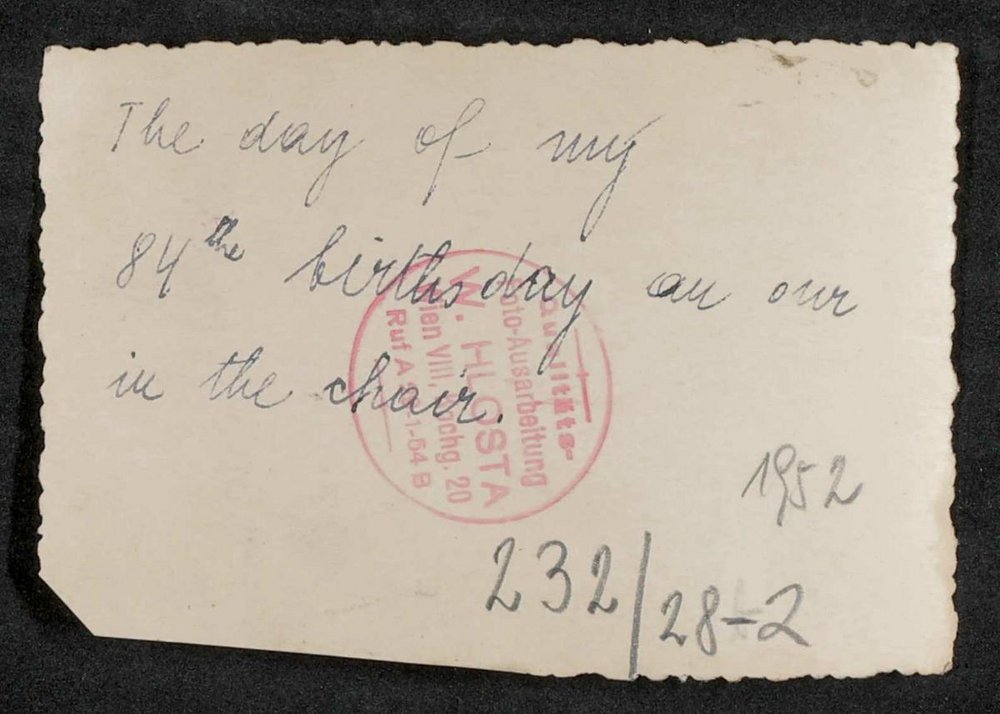 The day of my
84the birthsday an our
in the chair.
Qualitäts-
Foto-Ausarbeitung
W. HLOSTA
Wien VIII, 20
Ruf A
1952
232/28-2